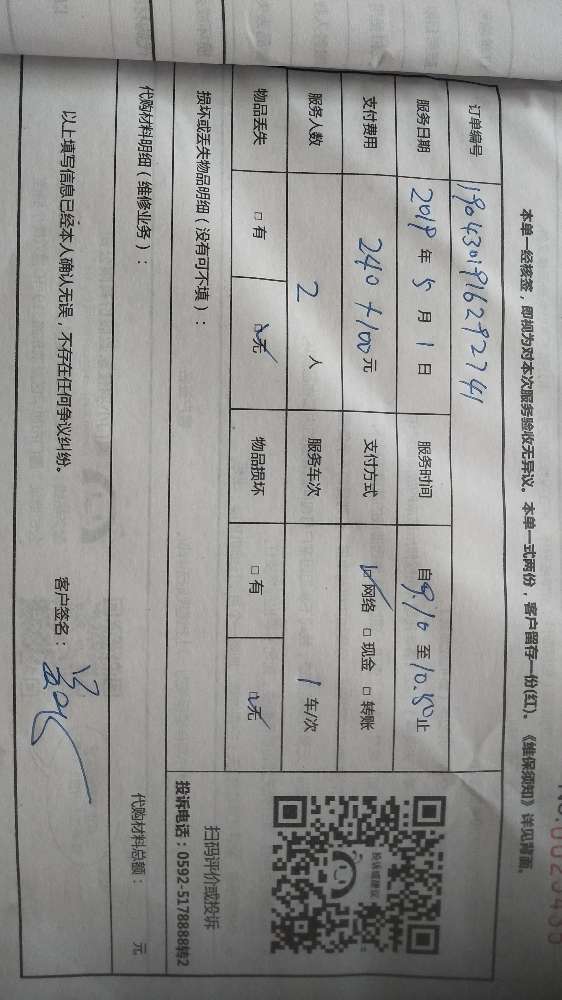 本单一经核签，即视为对本次服务验收无异议。本单一式两份，客户留存一份(红)。《维保须知》详见背面。
订单编号 1904301916292741
服务日期 2019 年 5 月 1 日 服务时间 自 9.10 至 10.50 止
支付费用 240+100 元 支付方式 ☑网络 □现金 □转账
服务人数 2 人 服务车次 1 车/次
物品丢失 □有 ☑无 物品损坏 □有 ☑无
损坏或丢失物品明细（没有可不填）：
扫码评价或投诉
投诉电话：0592-5178888转2
投诉或建议
代购材料明细（维修业务）：
代购材料总额： 元
以上填写信息已经本人确认无误，不存在任何争议纠纷。 客户签名：